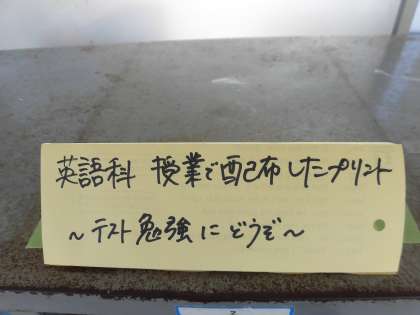 英語科 授業で配布したプリント
～テスト勉強にどうぞ～